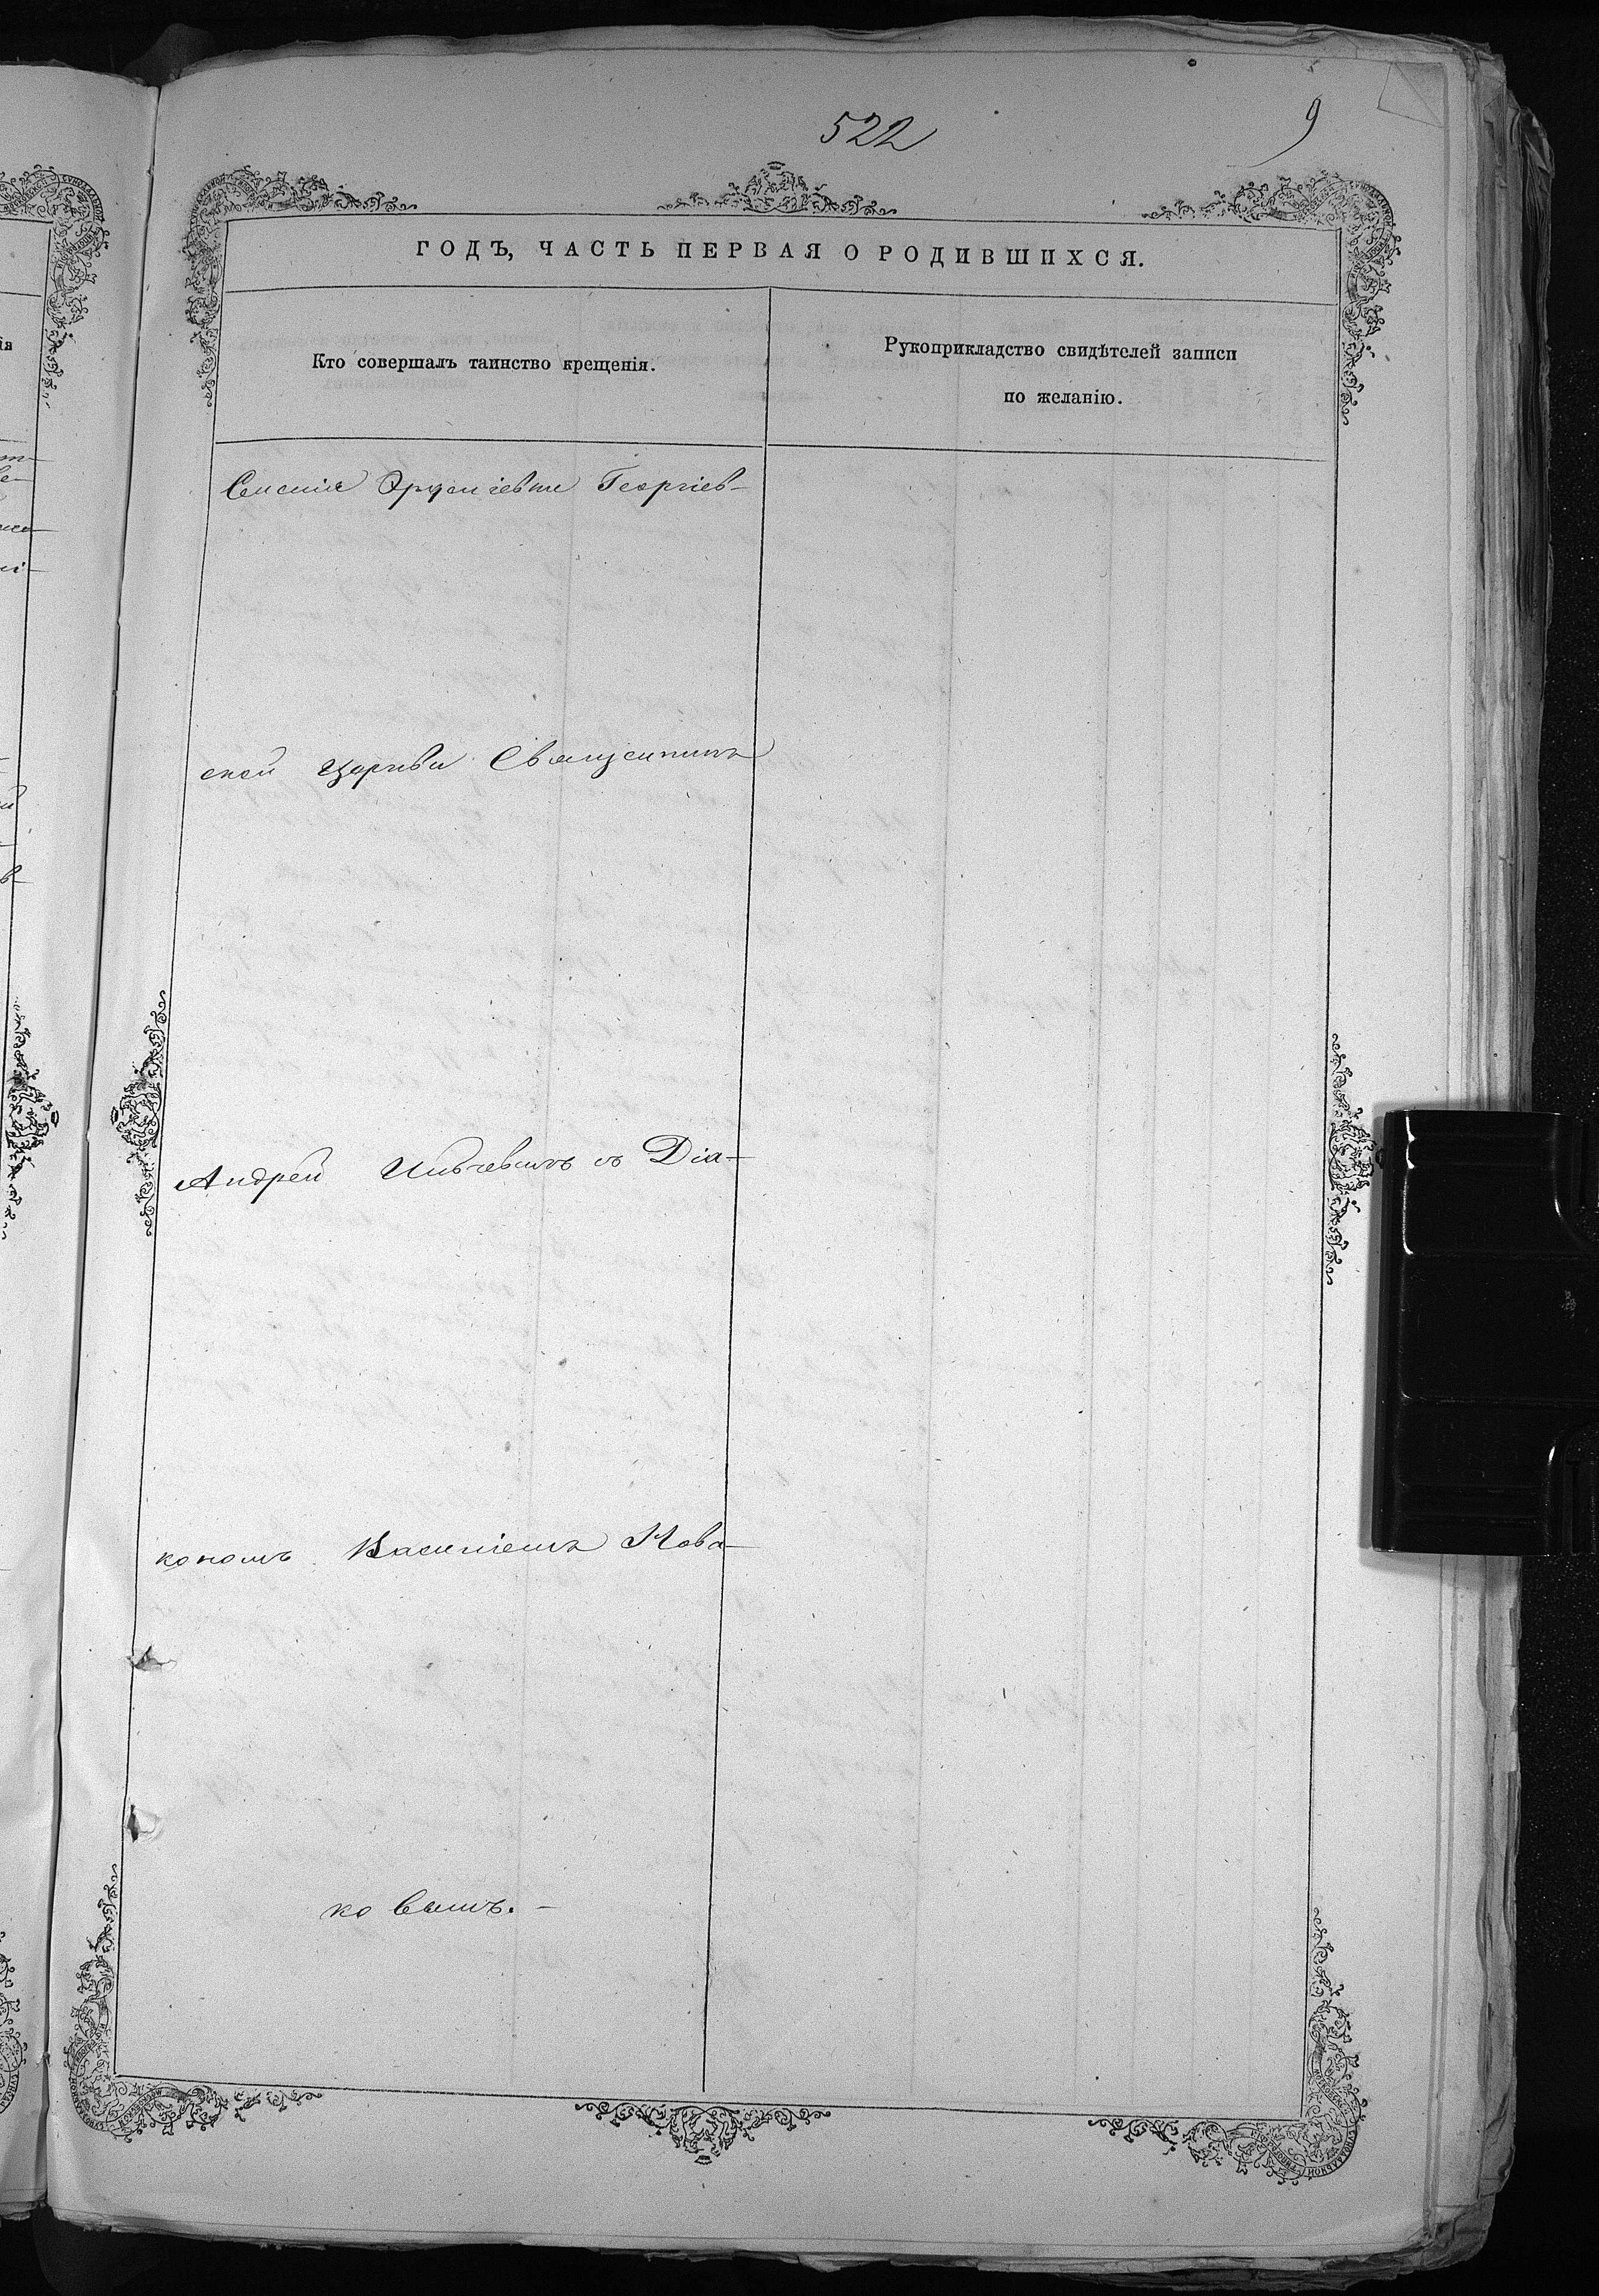 522
9
ГОДЪ, ЧАСТЬ ПЕРВАЯ О РОДИВШИХСЯ.
Кто совершалъ таинство крещенія.
Рукоприкладство свидѣтелей записи
по желанію.
Георгіев-
ской Церкви Священникъ
Андрей съ Діа-
кономъ Василіемъ Нова-
ковымъ. -